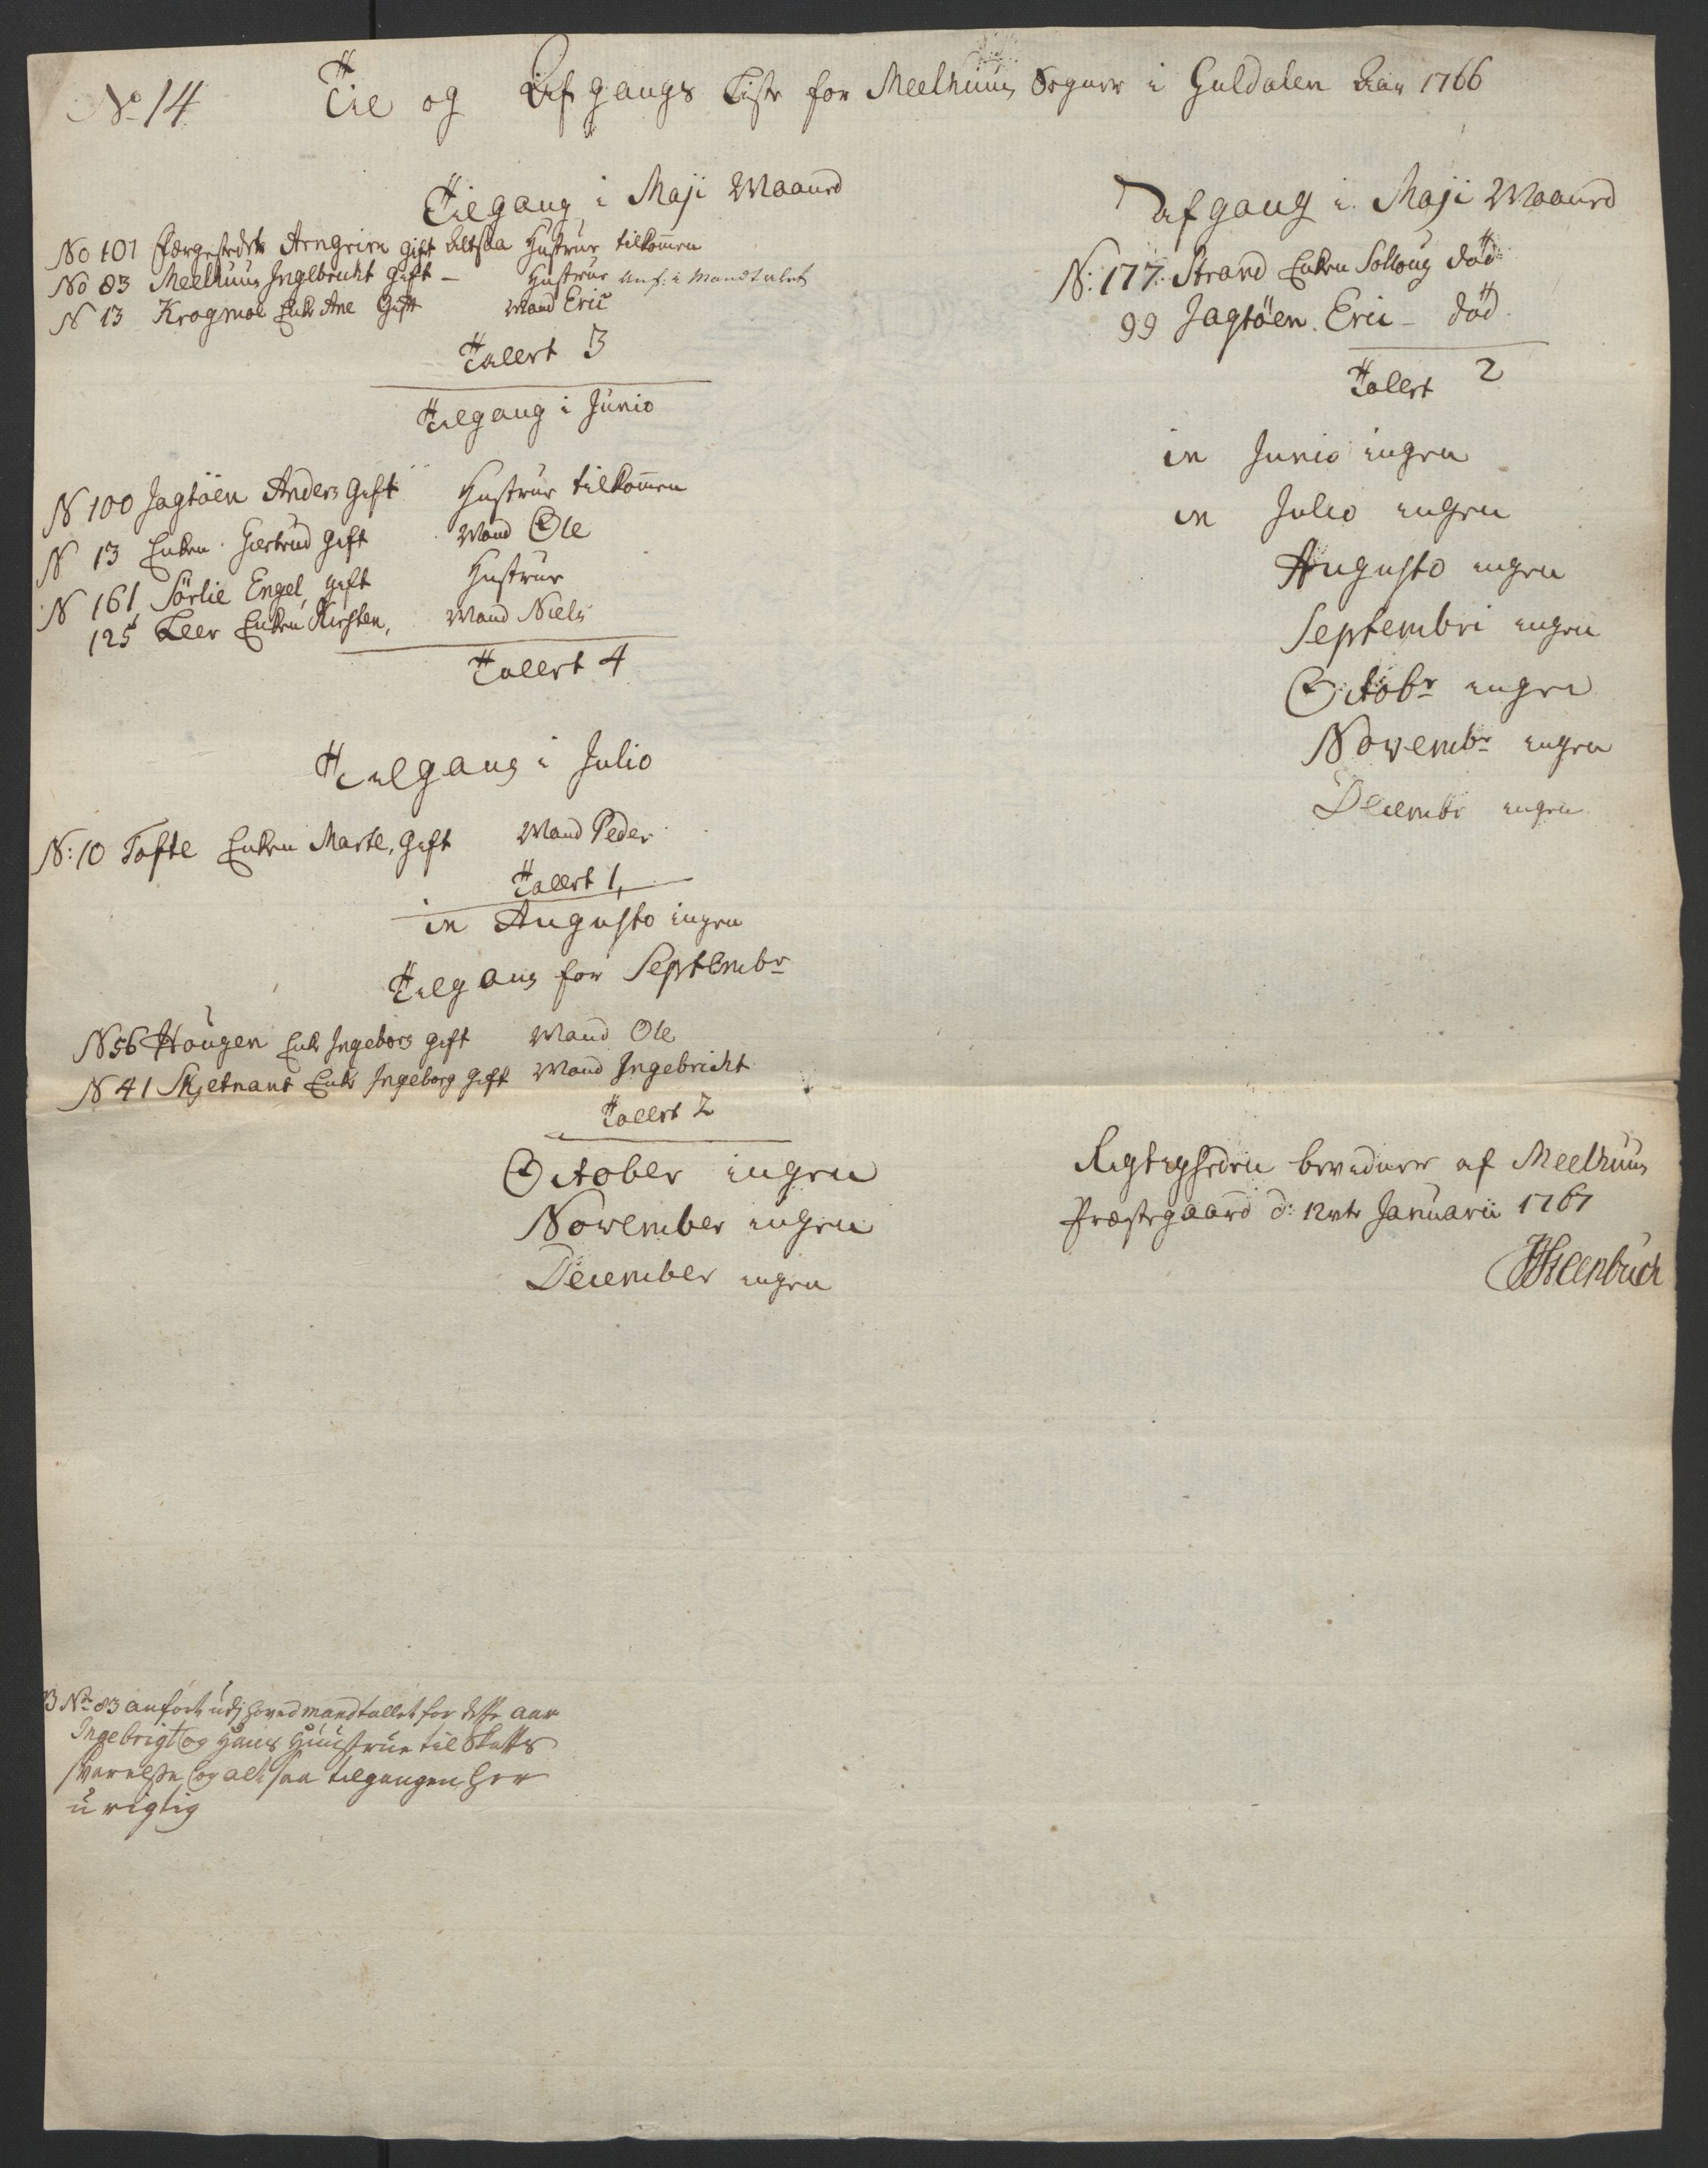 No 14
Til og Afgangs Liste for Meelhuus Sogner i Guldalen Aar 1766
Tilgang i Maji Maaned
No 101 Færgestedet Arngrim gift altsaa Hustrue tilkommen
No 83 Meelhuus Ingebricht gift - Hustrue anf: i Mandtalet
N 13 Krogmoe Enke Ane Gift Mand Eric
Tallert 3
Tilgang i Junio
N 100 Jagtöen Anders Gift Hustrue tilkommen
N 13 Enken Giertrud gift Mand Ole
N 161 Sörlie Engel, gift Hustrue
125 Leer Enken Kirsten, Mand Niels
Tallert 4
Tilgang i Julio
N: 10 Tofte Enken Marte, gift Mand Peder
Tallert 1,
in Augusto ingen
Tilgang for Septembr
N 56 Hougen Enke Ingeborg gift Mand Ole
N 41 Skjetnant Enke Ingeborg Gift Mand Ingebricht
Tallert 2
October ingen
November ingen
December ingen
Afgang i Maji Maaned
N: 177. Strand Enken Solloug död
99 Jagtöen. Eric - död
Tallert 2
in Junio ingen
in Julio ingen
Augusto ingen
Septembri ingen
Octobr ingen
Novembr ingen
Decembr ingen
Rigtigheden bevidner af Meelhuus
Præstegaard d: 12te Januarii 1767
HSteenbuch
No 83 anfört udj hoved mandtallet for dette aar
Ingebrigt og Hans Huustrue til Skatts
svarelse, og altsaa tilgangen her
urigtig